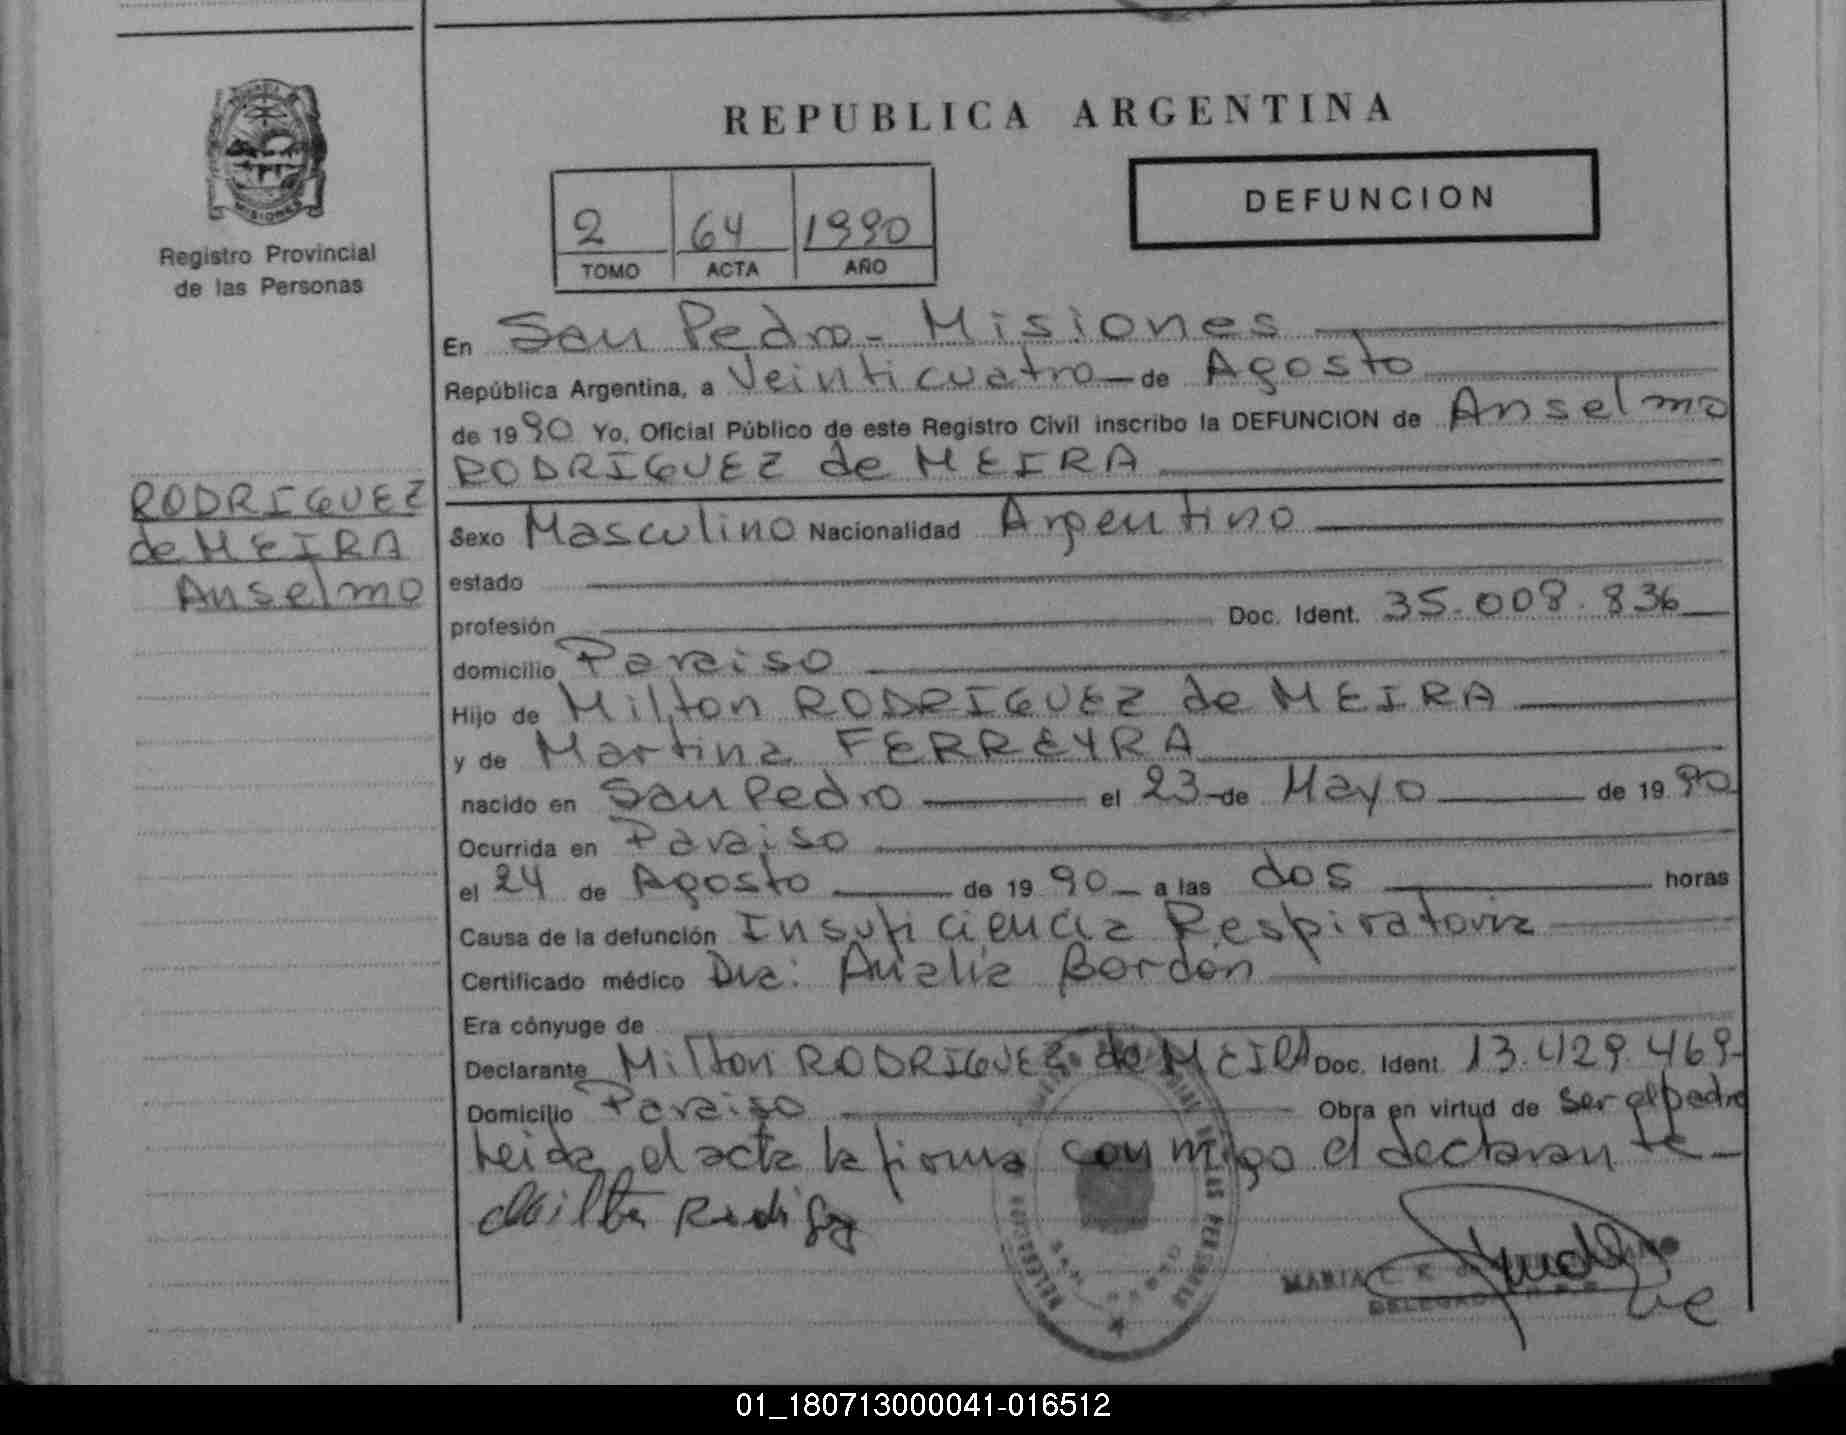 REPUBLICA ARGENTINA
MISIONES
Registro Provincial
de las Personas
2 64 1990
TOMO ACTA AÑO
DEFUNCION
En San Pedro - Misiones
República Argentina, a Veinticuatro de Agosto
de 1990 Yo, Oficial Público de este Registro Civil inscribo la DEFUNCION de Anselmo
RODRIGUEZ de MEIRA
RODRIGUEZ
de MEIRA
Anselmo
Sexo Masculino Nacionalidad Argentino
estado
profesión Doc. Ident. 35.008.836
domicilio Paraiso
Hijo de Milton RODRIGUEZ de MEIRA
y de Martina FERREYRA
nacido en San Pedro el 23 de Mayo de 1990
Ocurrida en Paraiso
el 24 de Agosto de 1990 a las dos horas
Causa de la defunción Insuficiencia Respiratoria
Certificado médico Dra: Analia Bordon
Era cónyuge de
Declarante Milton RODRIGUEZ de MEIRA Doc. Ident. 13.429.469
Domicilio Paraiso Obra en virtud de ser el padre
Leida el acta la firma conmigo el declarante
MARIA
01_180713000041-016512